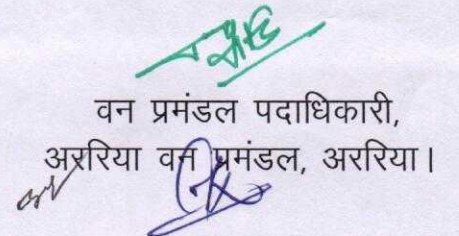 वन प्रमंडल पदाधिकारी,
अररिया वन प्रमंडल, अररिया।